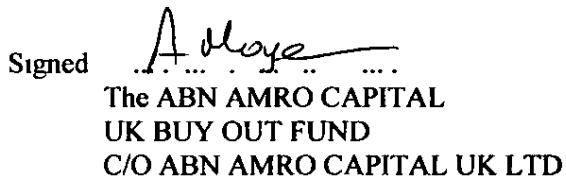 Signed
The ABN AMRO CAPITAL
UK BUY OUT FUND
C/O ABN AMRO CAPITAL UK LTD